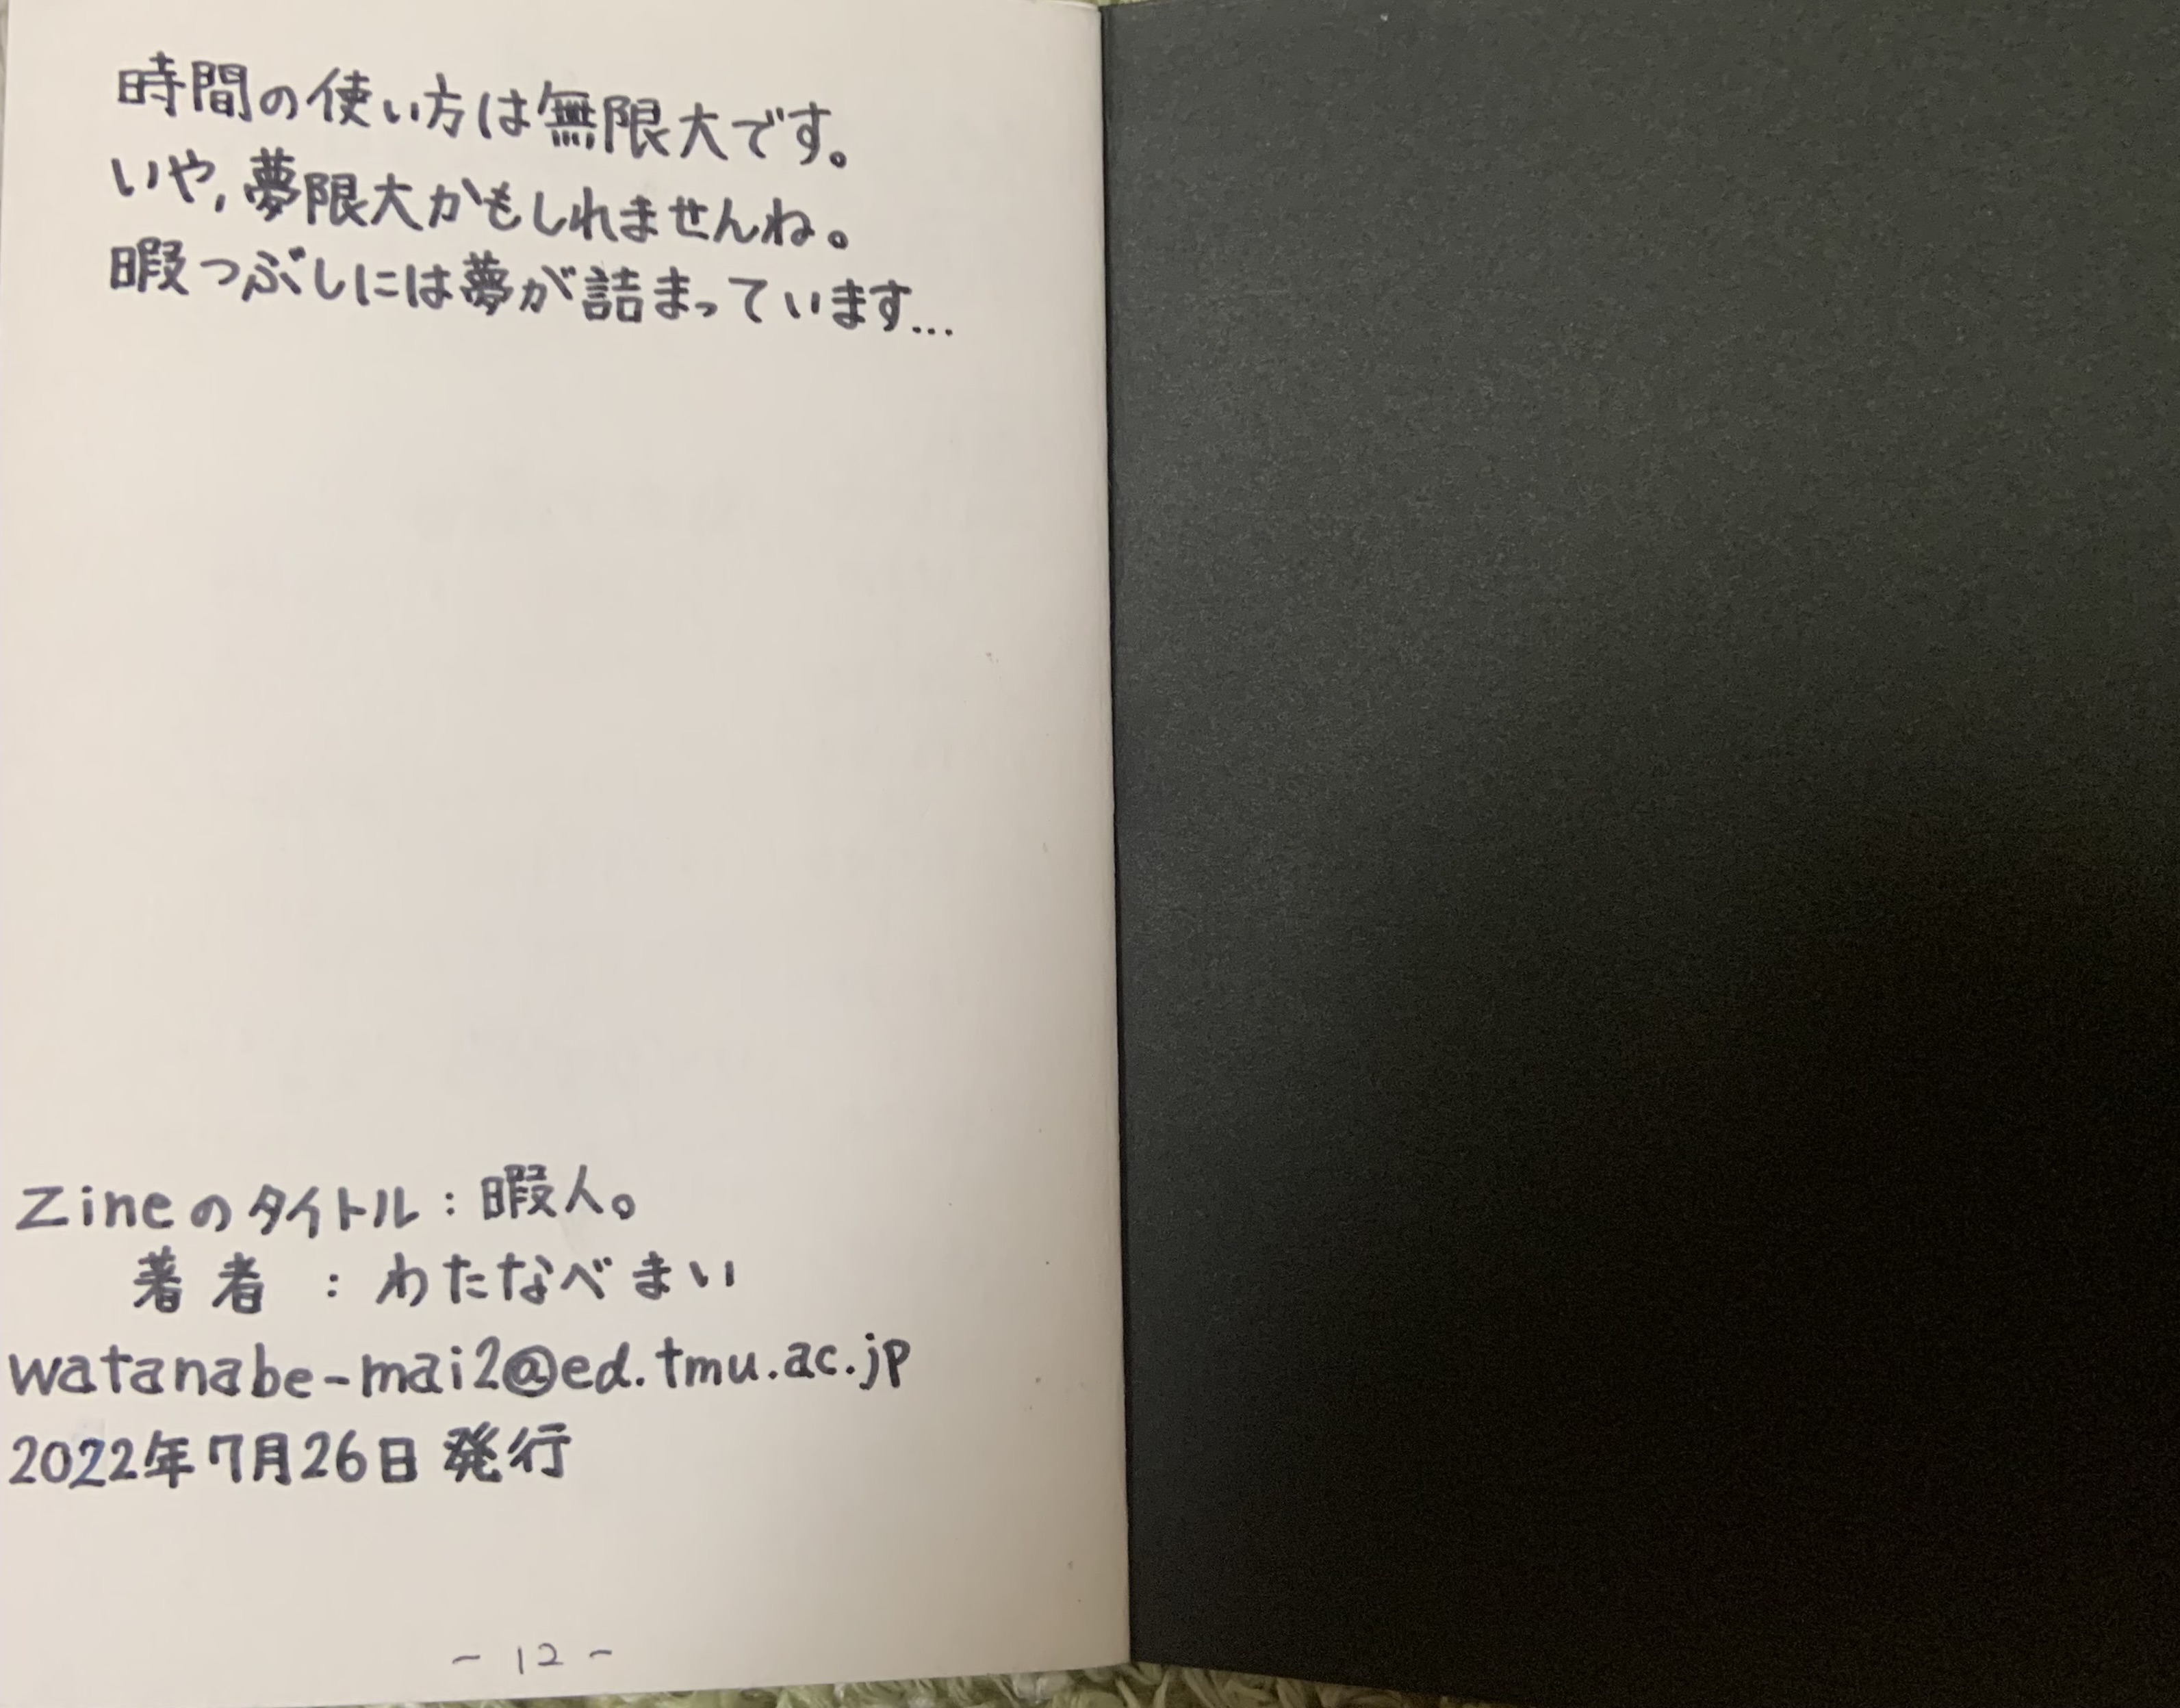 時間の使い方は無限大です。
いや,夢限大かもしれませんね。
暇つぶしには夢が詰まっています...
Zineのタイトル:暇人。
著者:わたなべまい
watanabe-mai2@ed.tmu.ac.jp
2022年7月26日発行
- 12 -